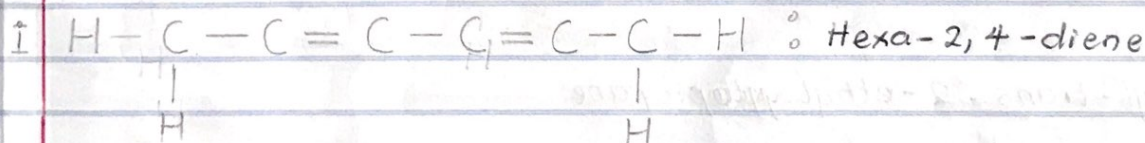 i H - C - C = C - C = C - C - H : Hexa-2,4-diene
H H